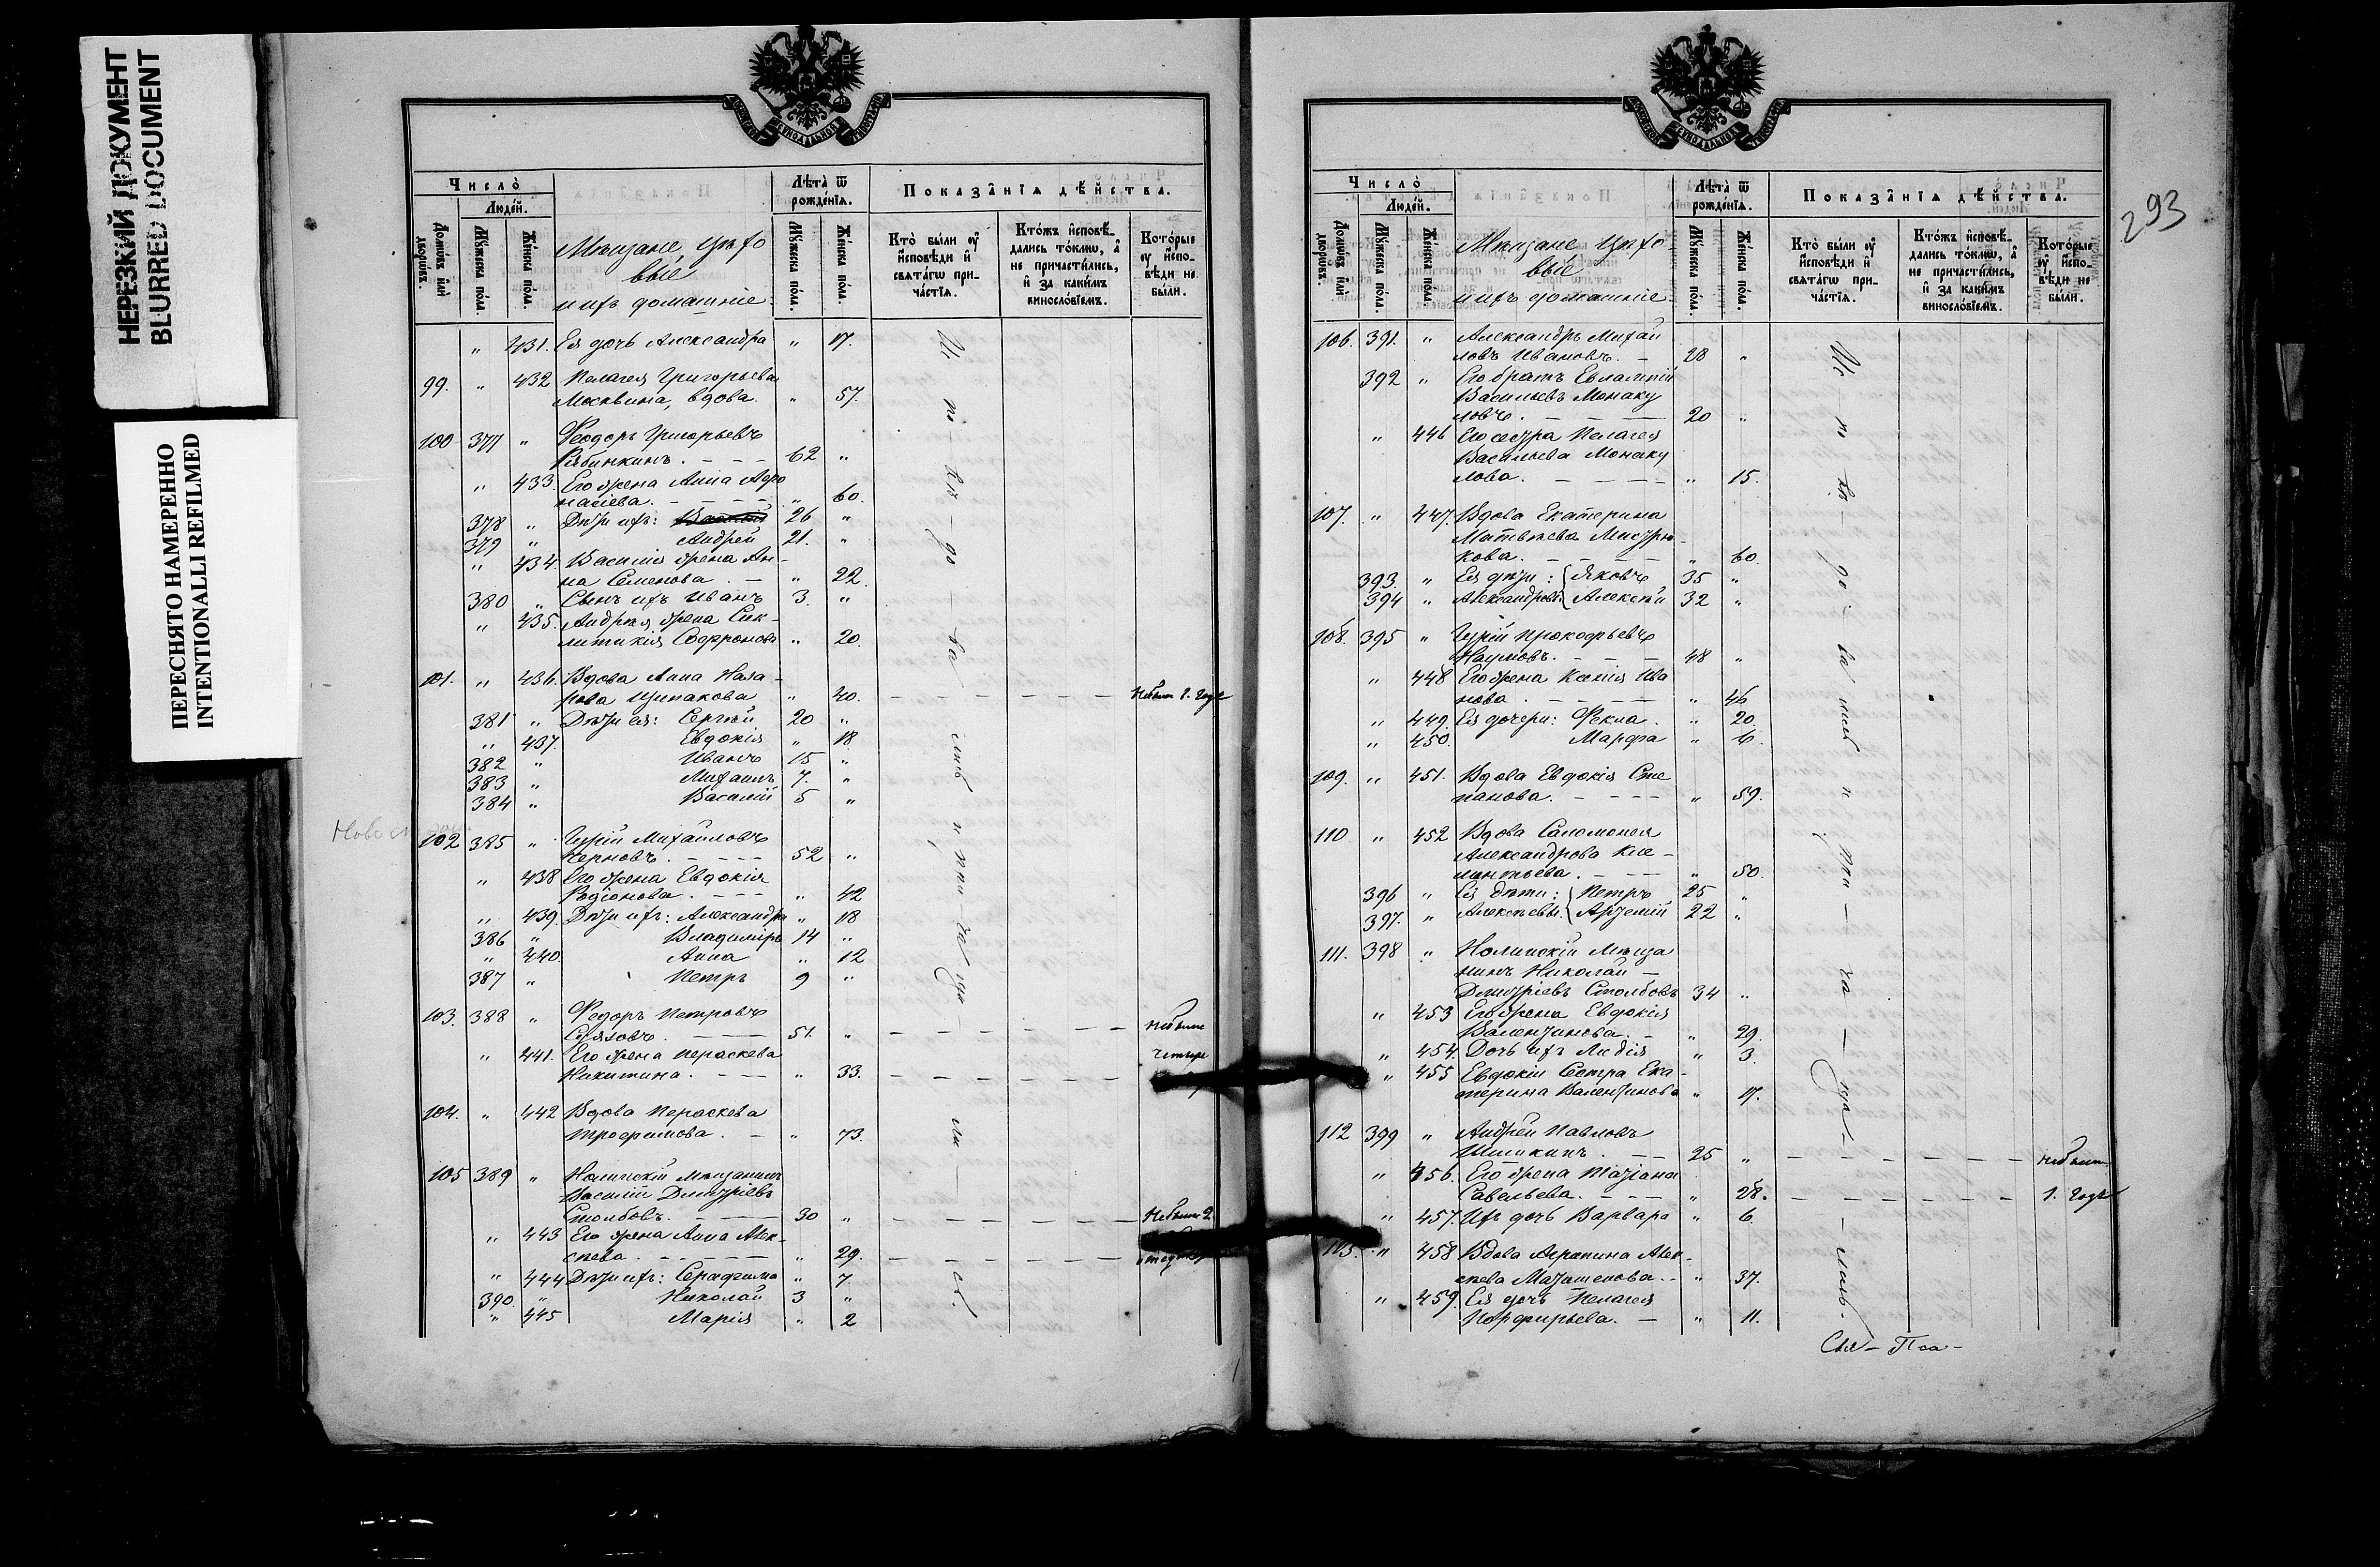 НЕРЕЗКИЙ ДОКУМЕНТ
BLURRED DOCUMENT
ПЕРЕСНЯТО НАМЕРЕННО
INTENTIONALLI REFILMED
МОСКОВСКОЙ СѴНОДАЛЬНОЙ ТИПОГРАФІИ
Число̀
Людéй.
Домѡ́въ и҆лѝ дворѡ́въ.
Мꙋ́жеска по́ла.
Же́нска по́ла.
Мѣщане цехо
вые
и ихъ домашніе.
Лѣта̀ ѿ рожде́нїѧ.
Мꙋ́жеска по́ла.
Же́нска по́ла.
Показа̑нїѧ дѣ́йства.
Кто̀ бы́ли ᲂу҆ и҆сповѣ́ди и҆ свѧта́гѡ при-
ча́стїѧ.
Кто́жъ и҆сповѣ́-
дались то́кмѡ, а҆
не причасти́лись,
и҆ за каки́мъ
винослов́їемъ.
Кото́рые
ᲂу҆ и҆спо-
вѣ́ди не
бы́ли.
„ 431. Ея дочь Александра „ 17.
99. „ 432 Пелагея Григорьева
Москвина, вдова. „ 57.
100 377 „ Феодоръ Григорьевъ
Рябинкинъ. 62 „
„ 433. Его жена Анна Афо
насіева. „ 60.
378 „ Дѣти ихъ: Василій 26 „
379 „ Андрей 21. „
„ 434. Василія жена Ан-
на Семенова. „ 22.
380 „ Сынъ ихъ Иванъ 3. „
„ 435. Андрея жена Сик-
литикія Софронова „ 20.
101. „ 436. Вдова Анна Наза-
рова „ 40. Небыла 1. годъ
381 „ Дѣти ея: Сергѣй 20 „
„ 437. Евдокія „ 18
382 „ Иванъ 15 „
383 „ Михаилъ 7. „
384 „ Василій 5 „
102 385 „ Гурій Михайловъ
Черновъ. 52 „
„ 438 Его жена Евдокія
Родіонова. „ 42
„ 439. Дѣти ихъ: Александра „ 18
386 „ Владиміръ 14 „
„ 440. Анна „ 12
387 „ Петръ 9 „
103. 388 „ Федоръ Петровъ
51. „ небыли
„ 441. Его жена Параскева четыре
Никитина. „ 33.
104. „ 442 Вдова Параскева
Трофимова. „ 73.
105 389 „ Нолинскій мѣщанинъ
Василій Дмитріевъ
Столбовъ. 30 „ Небыли 2.
„ 443 Его жена Анна Алек-
сѣева. „ 29.
„ 444 Дѣти ихъ: Серафима „ 7.
390. „ Николай 3 „
„ 445 Марія „ 2
293
Число̀
Людéй.
Домѡ́въ и҆лѝ дворѡ́въ.
Мꙋ́жеска по́ла.
Же́нска по́ла.
Мѣщане цехо-
вые
и ихъ домашніе.
Лѣта̀ ѿ рожде́нїѧ.
Мꙋ́жеска по́ла.
Же́нска по́ла.
Показа̑нїѧ дѣ́йства.
Кто̀ бы́ли ᲂу҆ и҆сповѣ́ди и҆ свѧта́гѡ при-
ча́стїѧ.
Кто́жъ и҆сповѣ́-
дались то́кмѡ, а҆
не причасти́лись,
и҆ за каки́мъ
винослов́їемъ.
Кото́рые
ᲂу҆ и҆спо-
вѣ́ди не
бы́ли.
106. 391. „ Александръ Михай
ловъ Ивановъ. 28 „
392 „ Его братъ Евлампій
Васильевъ Монаку
ловъ. 20 „
„ 446 Его сестра Пелагея
Васильева Монаку
лова. „ 15.
107. „ 447. Вдова Екатерина
Матвѣева Мистрю-
кова. „ 60.
393. „ Ея дѣти: Яковъ 35 „
394 „ Александровы Алексѣй 32 „
108. 395 „ Гурій Прокофьевъ
Наумовъ. 48 „
„ 448 Его жена Ксенія Ива
нова „ 46
„ 449. Ея дочери: Фекла. „ 20.
„ 450. Марфа „ 6.
109. „ 451. Вдова Евдокія Сте
панова. „ 59.
110 „ 452 Вдова Саломонея
Александрова Кле-
ментьева. „ 50.
396 „ Ея дѣти: Петръ 25 „
397. „ Алексѣевы. Артемій 22 „
111. 398 „ Нолинскій мѣща
нинъ Николай
Дмитріевъ Столбовъ 34 „
„ 453 Его жена Евдокія
Валентинова. „ 29.
„ 454. Дочь ихъ Лидія „ 3.
„ 455 Евдокіи сестра Ека-
терина Валентинова „ 17.
112 399 „ Андрей Павловъ
Шишкинъ. 25 „ небыли
„ 456. Его жена Татіана
Савельева. „ 28. 1. годъ
„ 457. Ихъ дочь Варвара „ 6.
113. „ 458 Вдова Агрипина Алек-
сѣева „ 37.
„ 459. Ея дочь Пелагея
Порфирьева. „ 11.